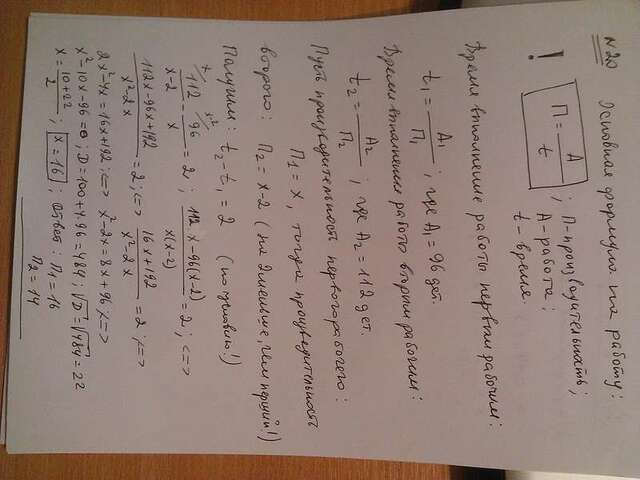 №20 Основная формула на работу:
! П = A/t ; П-производительность;
A-работа;
t-время.
Время выполнение работы первым рабочим:
t₁ = A₁/П₁ ; где A₁ = 96 дет.
Время выполнения работы вторым рабочим:
t₂ = A₂/П₂ ; где A₂ = 112 дет.
Пусть производительность первого рабочего:
П₁ = x, тогда производительность
второго: П₂ = x-2 (на 2 меньше, чем первый!)
Получим: t₂ - t₁ = 2 (по условию!)
112/(x-2) - 96/x = 2 ; (112x-96(x-2))/(x(x-2)) = 2 ; <=>
(112x-96x+192)/(x²-2x) = 2 ; <=> (16x+192)/(x²-2x) = 2 ; <=>
2x²-4x = 16x+192 ; <=> x²-2x = 8x+96 ; <=>
x²-10x-96 = 0 ; D = 100+4·96 = 484 ; √D = √484 = 22
x = (10+22)/2 ; x = 16 ; Ответ: П₁ = 16
П₂ = 14